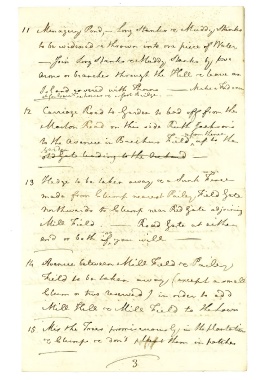 11 Menagery Pond — Long Stanks & Muddy Stanks
to be widened & thrown into one piece of Water
— Join Long Stanks & Muddy Stanks by two
arms or branches through the Hill & leave an
Island covered with Thorns —
12 Carriage Road to Garden to lead off from the
Road on this side
to the Avenue in Bacchus Field up to the
Old Gate leading to the
13 Hedge to be taken away & a Sunk Fence
made from Clump nearest Paisley Field Gate
Northwards to Clump near Red Gate adjoining
Mill Field — Road Gate at either
end or both if you will —
14 Avenue between Mill Field & Paisley
Field to be taken away (except a small
Clump or two reserved) in order to add
Mill Hill & Mill Field to the Lawn
15 Mix the Trees promiscuously in the plantations
& Clumps & don't plant them in patches
3